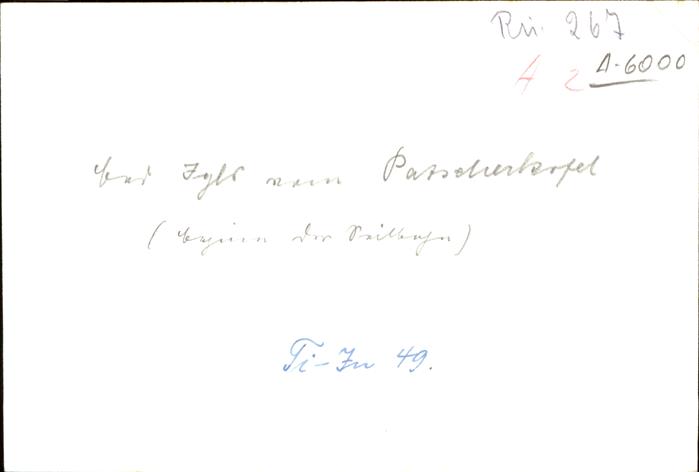 Rii. 267
4 2 A-6000
Bad Igls vom Patscherkofel
(Beginn der Seilbahn)
Ti-In 49.